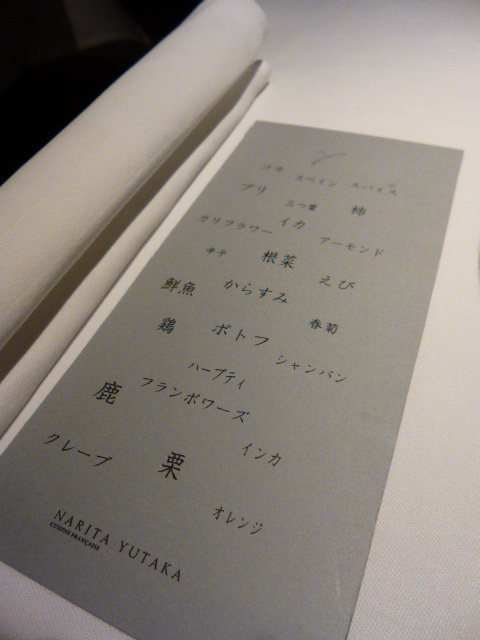 コカ スペイン スパイス
ブリ 三つ葉 柿
カリフラワー イカ アーモンド
辛子 根菜 えび
鮮魚 からすみ 春菊
鶏 ポトフ シャンパン
ハーブティ
鹿 フランボワーズ インカ
クレープ 栗 オレンジ
NARITA YUTAKA
CUISINE FRANÇAISE